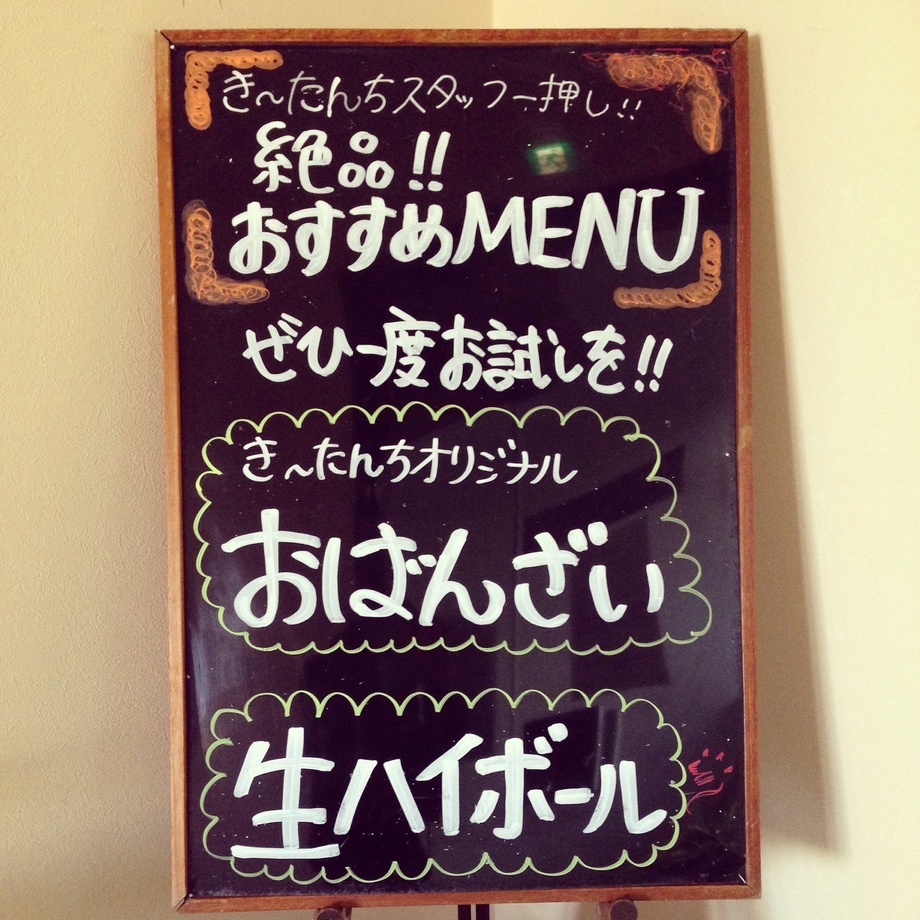 き〜たんちスタッフ一押し!!
絶品!!
おすすめMENU
ぜひ一度お試しを!!
き〜たんちオリジナル
おばんざい
生ハイボール